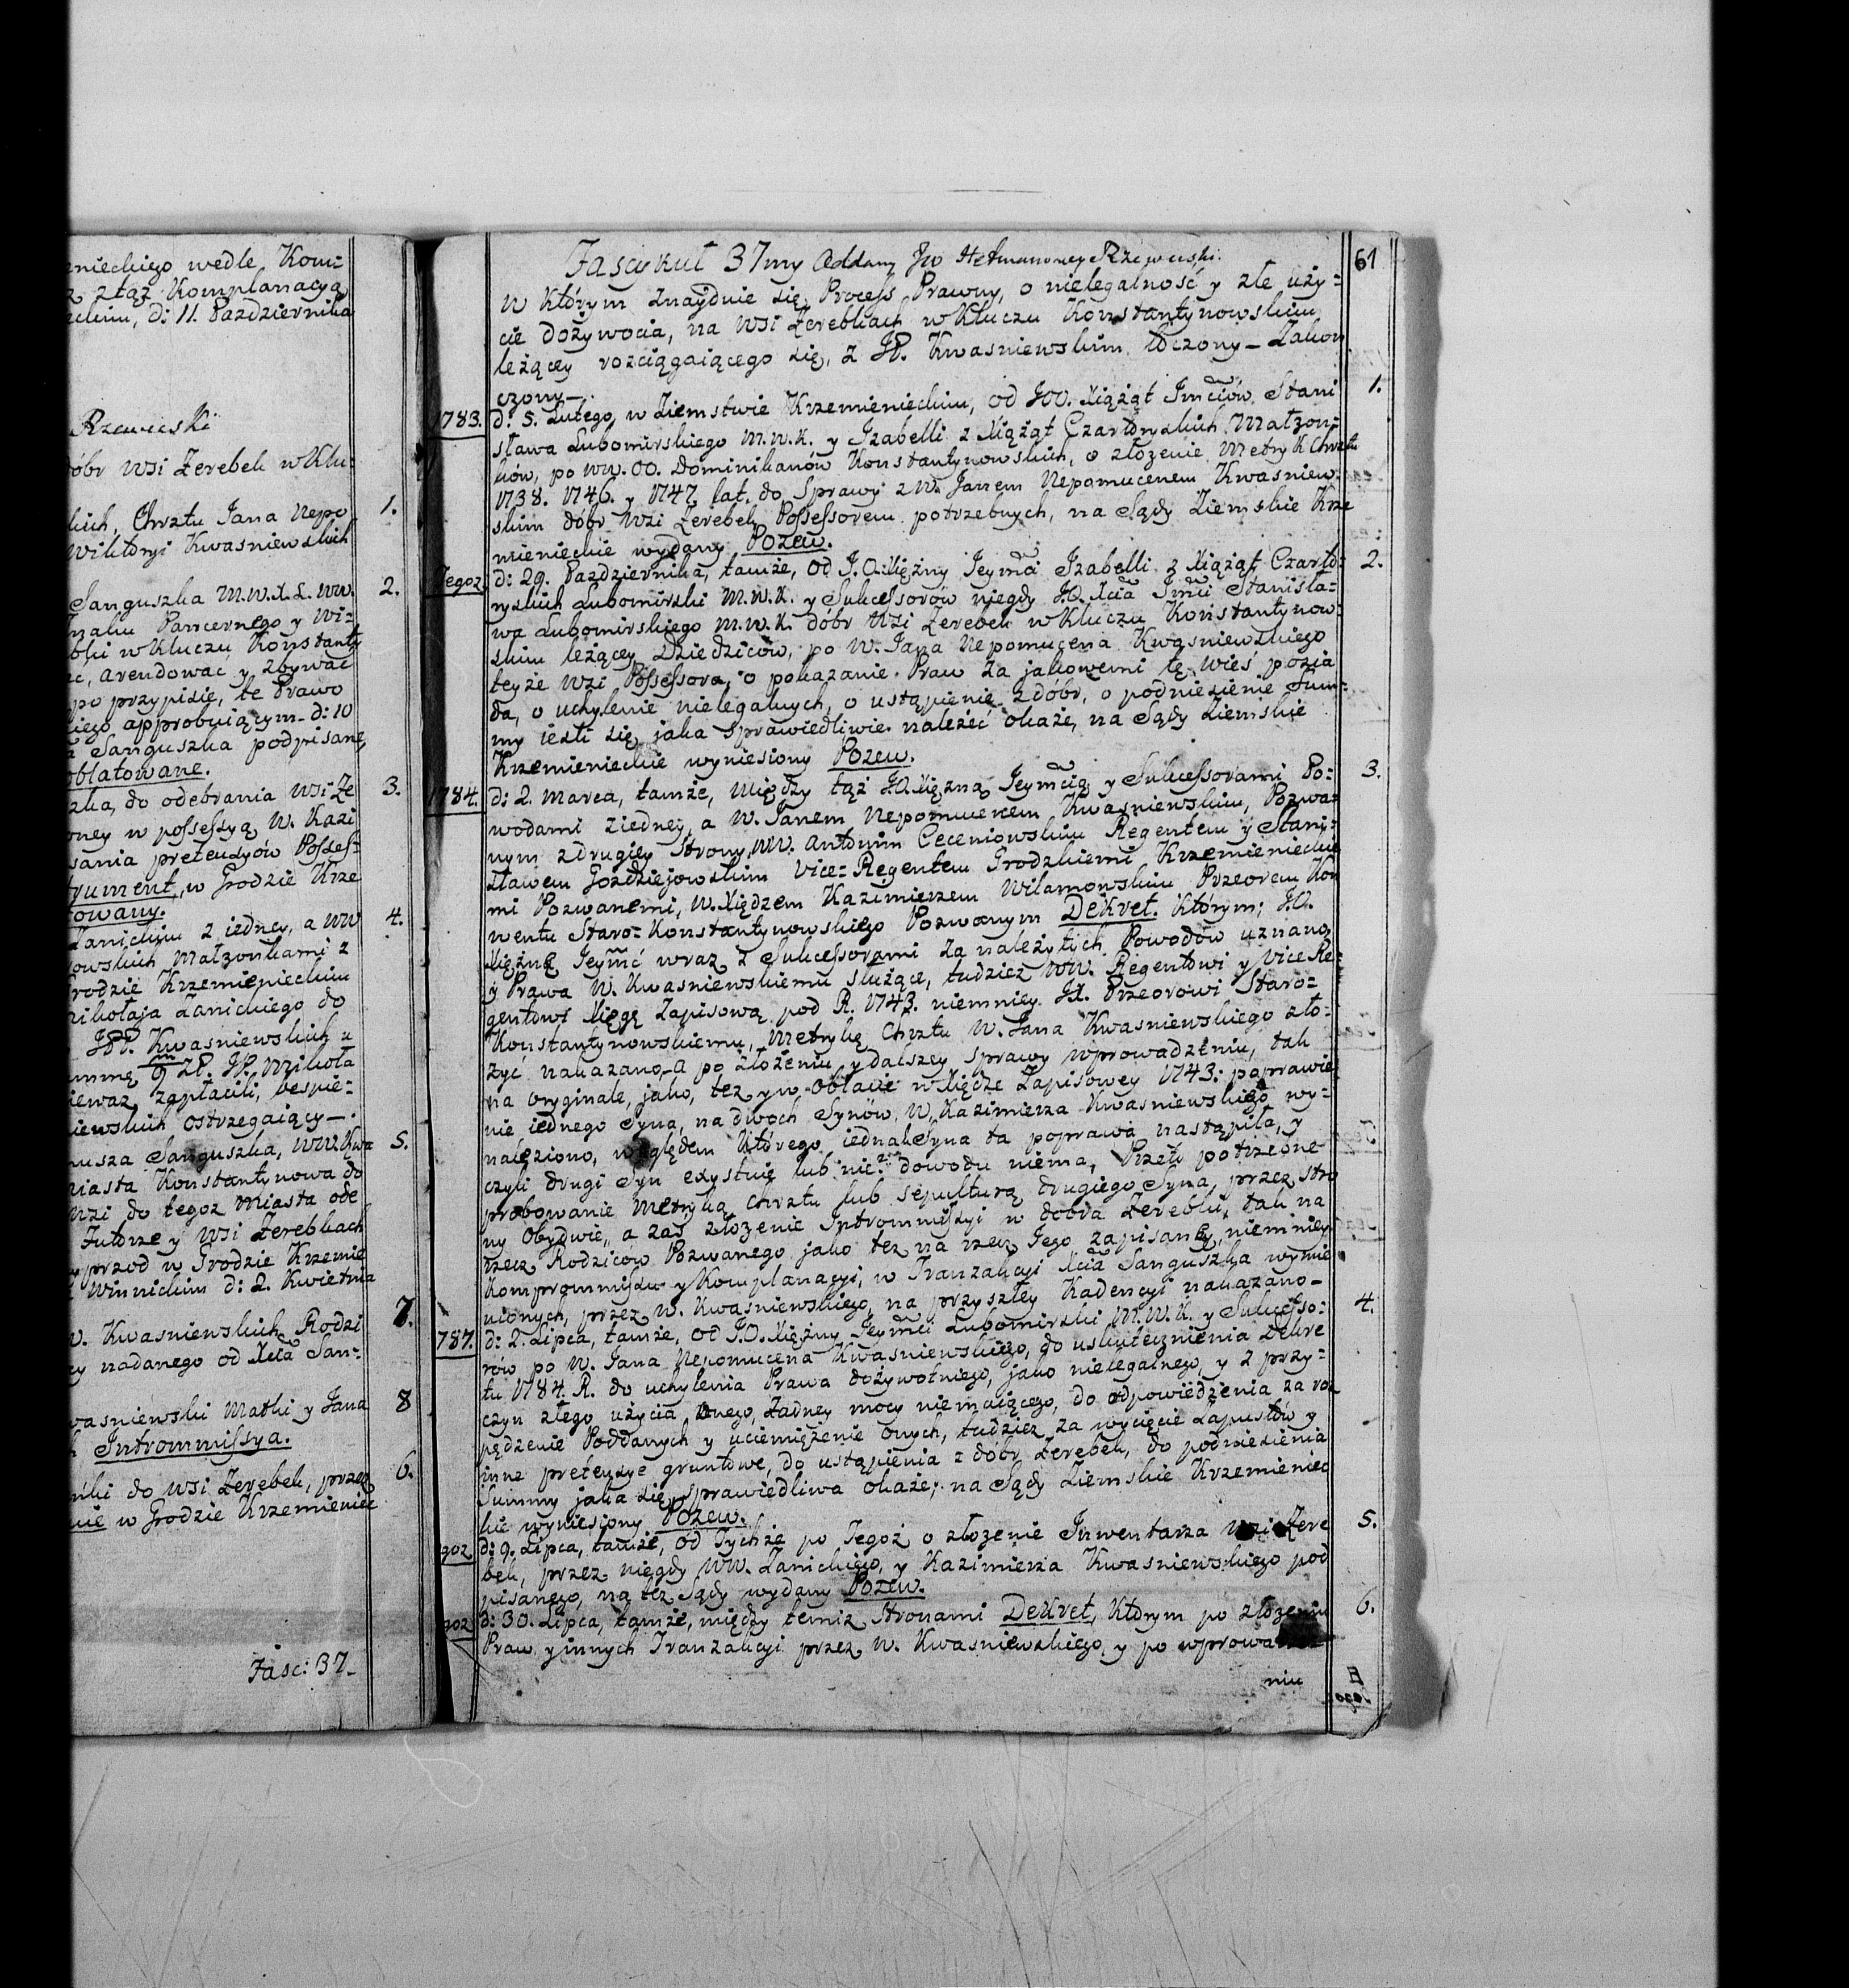 nieckiego wedle Kom=
z tąż Komplanacyą
eckim, d: 11. Pazdziernika
Rzewuski
dóbr wsi Zerebek w Klu=
kich, Chrztu Jana Nepo 1.
Wiktoryi Kwasniewskich
Sanguszka M.W.X.L. WW. 2.
Znaku Pancernego y Wi=
bki w Kluczu Konstanty
ić, arendować y zbywać
po przypisie, te Prawo
kiego approbuiącym d: 10
Sanguszka podpisane
oblatowane.
zka, do odebrania wsi Ze 3.
oney w possessyą W. Kazi
sania pretensyów Posses=
trument, w Grodzie Krze
towany.
Zanickim z iedney, a WW 4.
owskich Małzonkami z
rodzie Krzemienieckim
Mikołaja Zanickiego do
JPP. Kwasniewskich u
ummę 9 m ZP. JP. Mikoła
iewaz zapłacili, bespie=
iewskich ostrzegaiący—.
nusza Sanguszka, WW. Kwa 5.
miasta Konstantynowa do
wzi do tegoz Miasta ode
Futorze y wsi Zerebkach
przod w Grodzie Krzemie
Winnickim d: 2. Kwietnia
W. Kwasniewskich Rodzi 7.
cy nadanego od Xcia San=
wasniewski Matki y Jana 8
Intrommissya.
niki do wsi Zerebek, przez 6.
nie w Grodzie Krzemieniec
Fasc: 37.
61
Fascykuł 37my Oddany JW Hetmanowey Rzewuski.
w którym znayduie się Process Prawny, o nielegalność y złe uży=
cie dożywocia, na wsi Zerebkach w Kluczu Konstantynowskim
leżącey rozciągaiącego się, z JP. Kwasniewskim tóczony — Zakon
czony —.
1783. d: 5. Lutego, w Ziemstwie Krzemienieckim, od JOO. Xiążąt Imciów Stani 1.
sława Lubomirskiego M.W.K. y Izabelli z Xiążąt Czartoryskich Małzon=
ków, po WW. OO. Dominikanów Konstantynowskich, o złozenie Metryk Chrztu
1738. 1746. y 1747 lat. do Sprawy z W. Janem Nepomucenem Kwasniew=
skim dóbr Wsi Zerebek Possessorem potrzebnych, na Sądy Ziemskie Krze
mienieckie wydany Pozew.
Tegoz d: 29. Pazdziernika, tamże, od J.O. Xiężny Jeymci Izabelli z Xiążąt Czarto= 2.
ryskich Lubomirski M.W.K. y Sukcessorów niegdy J.O. Xcia Imci Stanisła=
wa Lubomirskiego M.W.K. dóbr Wsi Zerebek w Kluczu Konstantynow=
skim leżącey Dziedziców, po W. Jana Nepomucena Kwasniewskiego
teyże Wsi Possessora, o pokazanie Praw za jakowemi tę wieś posia
da, o uchylenie nielegalnych, o ustąpienie z dóbr, o podniesienie Sum=
my iesli się jaka sprawiedliwie należeć okaże, na Sądy Ziemskie
Krzemienieckie wyniesiony Pozew.
1784. d: 2. Marca, tamże, między tąż J.O. Xiężną Jeymcią y Sukcessorami Po= 3.
wodami z iedney, a W. Janem Nepomucenem Kwasniewskim, Pozwa=
nym z drugiey Strony, WW. Antonim Ceceniowskim Regentem y Stani=
sławem Gozdziejowskim Vice=Regentem Grodzkiemi Krzemieniecki
mi Pozwanemi, W. Xiędzem Kazimierzem Wilamowskim Przeorem Kon
wentu Staro=Konstantynowskiego Pozwanym Dekret. którym; J.O.
Xiężnę Jeymć wraz z Sukcessorami za należytych Powodów uznano,
y Prawa W. Kwasniewskiemu służące, tudziez WW. Regentowi y Vice Re=
gentowi Xięgę Zapisową pod R. 1743. niemniey JX. Przeorowi Staro=
Konstantynowskiemu, Metrykę Chrztu W. Jana Kwasniewskiego zło=
żyć nakazano, a po złożeniu y dalszey sprawy wprowadzeniu, tak
na oryginale, jako, tez y w Oblacie w Xiędze Zapisowey 1743. poprawie
nie iednego Syna, na dwoch Synów W. Kazimierza Kwasniewskiego wy=
naleziono, względem którego iednak Syna ta poprawa nastąpiła, y
czyli drugi Syn exystuie lub nie? dowodu niema, Przeto potrzebne
probowanie Metryką chrztu lub sepulturą drugiego Syna, przez Stro
ny Obydwie, a zaś złozenie Intrommissyi w dobra Zerebki, tak na
rzecz Rodziców Pozwanego jako tez na rzecz Jego zapisaney, niemniey
Kompromissu y Komplanacyi, w Tranzakcyi Xcia Sanguszka wymie
nionych, przez W. Kwasniewskiego, na przyszłey Kadencyi nakazano —
787. d: 2. Lipca, tamże, od J.O. Xiężny Jeymci Lubomirski M.W.K. y Sukcesso= 4.
rów po W. Jana Nepomucena Kwasniewskiego, do uskutecznienia Dekre
tu 1784. R. do uchylenia Prawa dożywotniego, jako nielegalnego, y z przy=
czyn złego użycia onego, żadney mocy niemaiącego, do odpowiedzenia za roz
pędzenie Poddanych y uciemiężenie onych, tudziez za wycięcie Zapustów y
inne pretensye gruntowe, do ustąpienia z dóbr Zerebek, do podniesienia
Summy jaka się sprawiedliwa okaże; na Sądy Ziemskie Krzemieniec
kie wyniesiony Pozew.
goz d: 9. Lipca, tamże, od Tychże po Tegoż o złozenie Inwentarza Wsi Zere 5.
bek, przez niegdy WW. Zanickiego, y Kazimierza Kwasniewskiego pod
pisanego, na też Sądy wydany Pozew.
goz d: 30. Lipca, tamże, między temiz Stronami Dekret, którym po złozeniu 6.
Praw y innych Tranzakcyi przez W. Kwasniewskiego, y po wprowa
niu